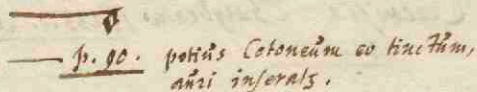 p. 90. potius Cotoneum eo tinctum,
auri inseratz.